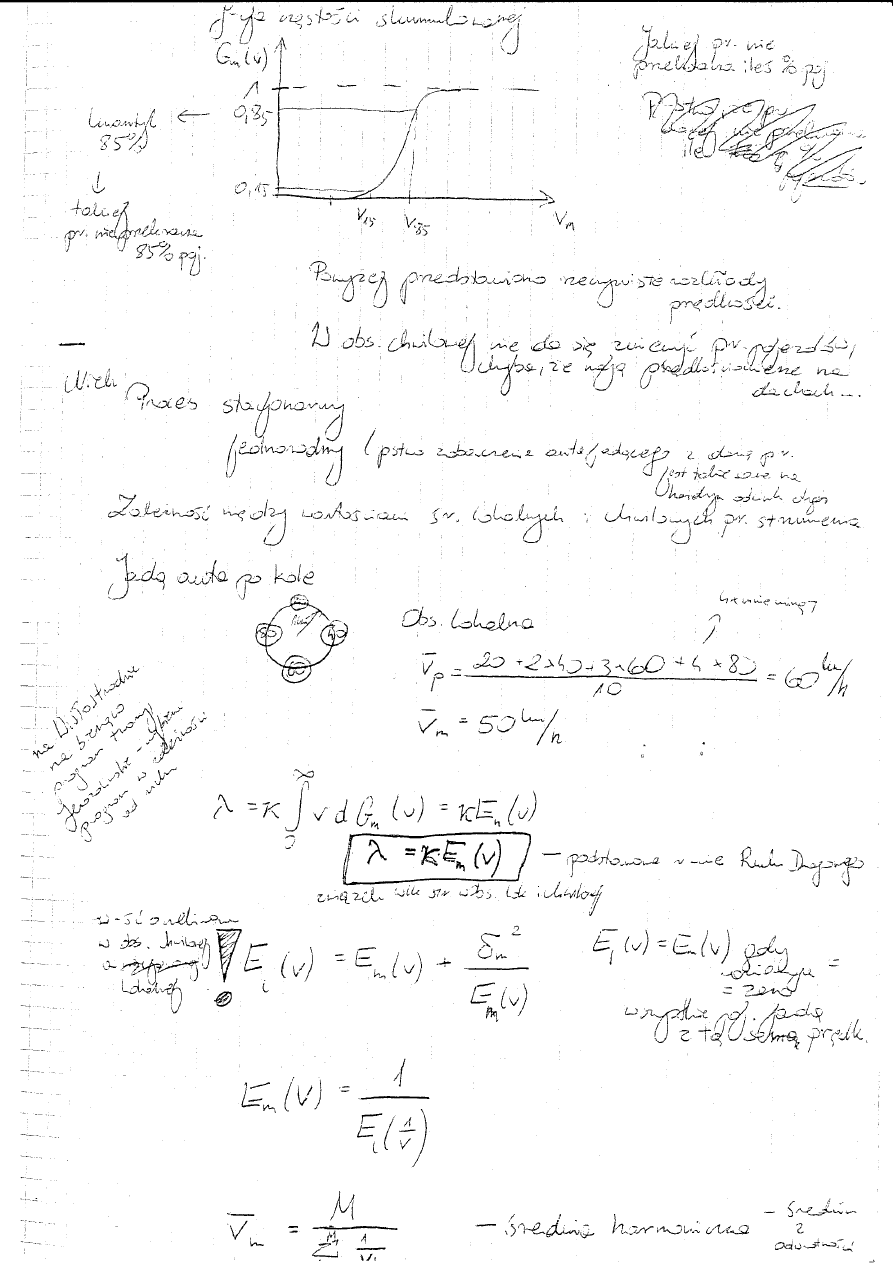 f-cja częstości skumulowanej
Gm(v)
1
0,85
0,15
V15
V85
Vm
kwantyl
85%
↓
takiej
pr. nie przekracza
85% poj.
Jakiej pr. nie
przekracza ileś % poj.
Powyżej przedstawiono rzeczywiste rozkłady
prędkości.
W obs. chwilowej nie da się zmierzyć pr. pojazdów,
chyba, że mają prędkościomierze na
dachach...
Proces stacjonarny
jednorodny (pstwo zobaczenia auta jadącego z daną pr.
jest takie same na
każdym odcinku drogi
Zależność między wartościami śr. lokalnych i chwilowych pr. strumienia
Jadą auta po kole
20
80
40
60
Obs. lokalna
V̄p = (20 + 2×40 + 3×60 + 4×80) / 10 = 60 km/h
V̄m = 50 km/h
na
na
program
program w zależności
od ruchu
λ = κ ∫₀^∞ v d Gm(v) = κEm(v)
λ = κEm(v) – podstawowe r-nie Ruchu Drogowego
związek
w obs. chwilowej
a
lokalnej
! Ei(v) = Em(v) + δm² / Em(v)
Ei(v) = Em(v) gdy
=
= zero
wszystkie poj. jadą
z tą samą prędk.
Em(v) = 1 / Ei(1/v)
V̄h = M / Σ 1/Vi – średnia harmoniczna
– średnia
z
odwrotności